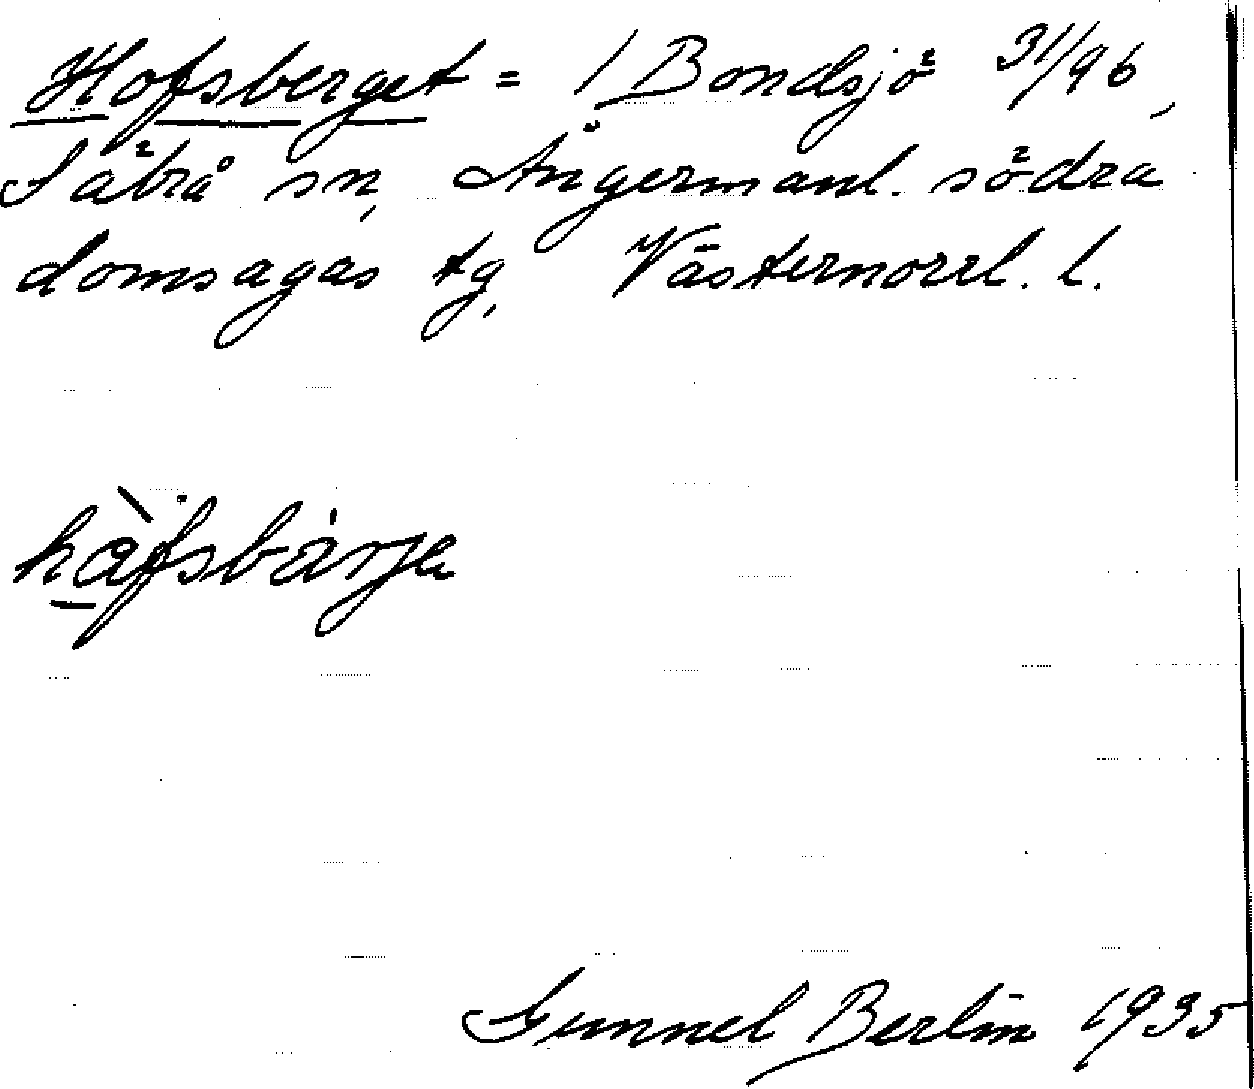 Hofsberget = / Bondsjö 31/96,
Säbrå sn, Ångermanl. södra
domsagas tg, Västernorrl. l.
hàfsbárja
Gunnel Berlin 1935